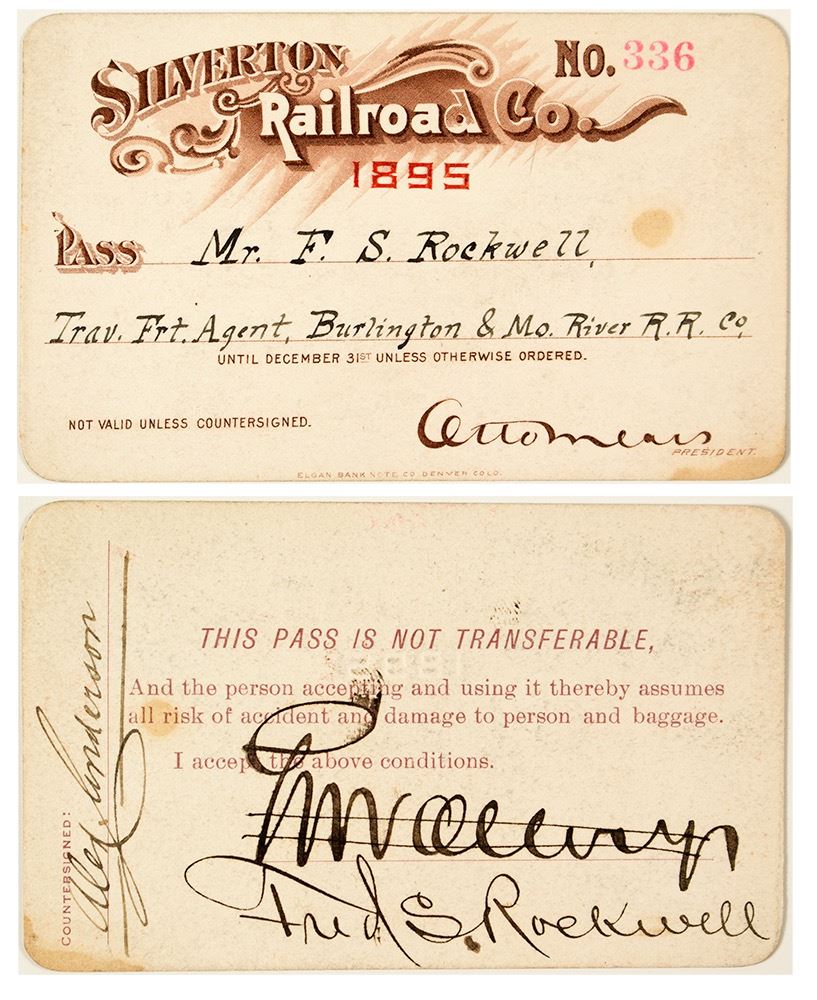 SILVERTON
Railroad Co.
No. 336
1895
PASS Mr. F. S. Rockwell,
Trav. Frt. Agent, Burlington & Mo. River R.R. Co,
UNTIL DECEMBER 31ST UNLESS OTHERWISE ORDERED.
NOT VALID UNLESS COUNTERSIGNED.
Otto Mears
PRESIDENT.
ELGAN BANK NOTE CO DENVER COLO.
THIS PASS IS NOT TRANSFERABLE,
And the person accepting and using it thereby assumes
all risk of accident and damage to person and baggage.
I accept the above conditions.
Fred S. Rockwell
COUNTERSIGNED:
Alex Anderson